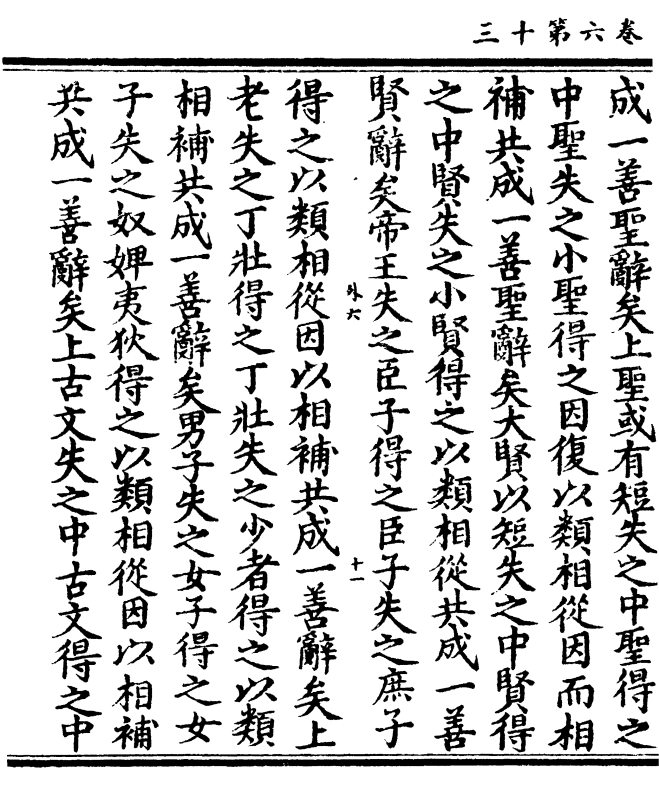 卷六第十三
成一善聖辭矣上聖或有短失之中聖得之
中聖失之小聖得之因復以類相從因而相
補共成一善聖辭矣大賢以短失之中賢得
之中賢失之小賢得之以類相從共成一善
賢辭矣帝王失之臣子得之臣子失之庶子
外六
十一
得之以類相從因以相補共成一善辭矣上
老失之丁壯得之丁壯失之少者得之以類
相補共成一善辭矣男子失之女子得之女
子失之奴婢夷狄得之以類相從因以相補
共成一善辭矣上古文失之中古文得之中